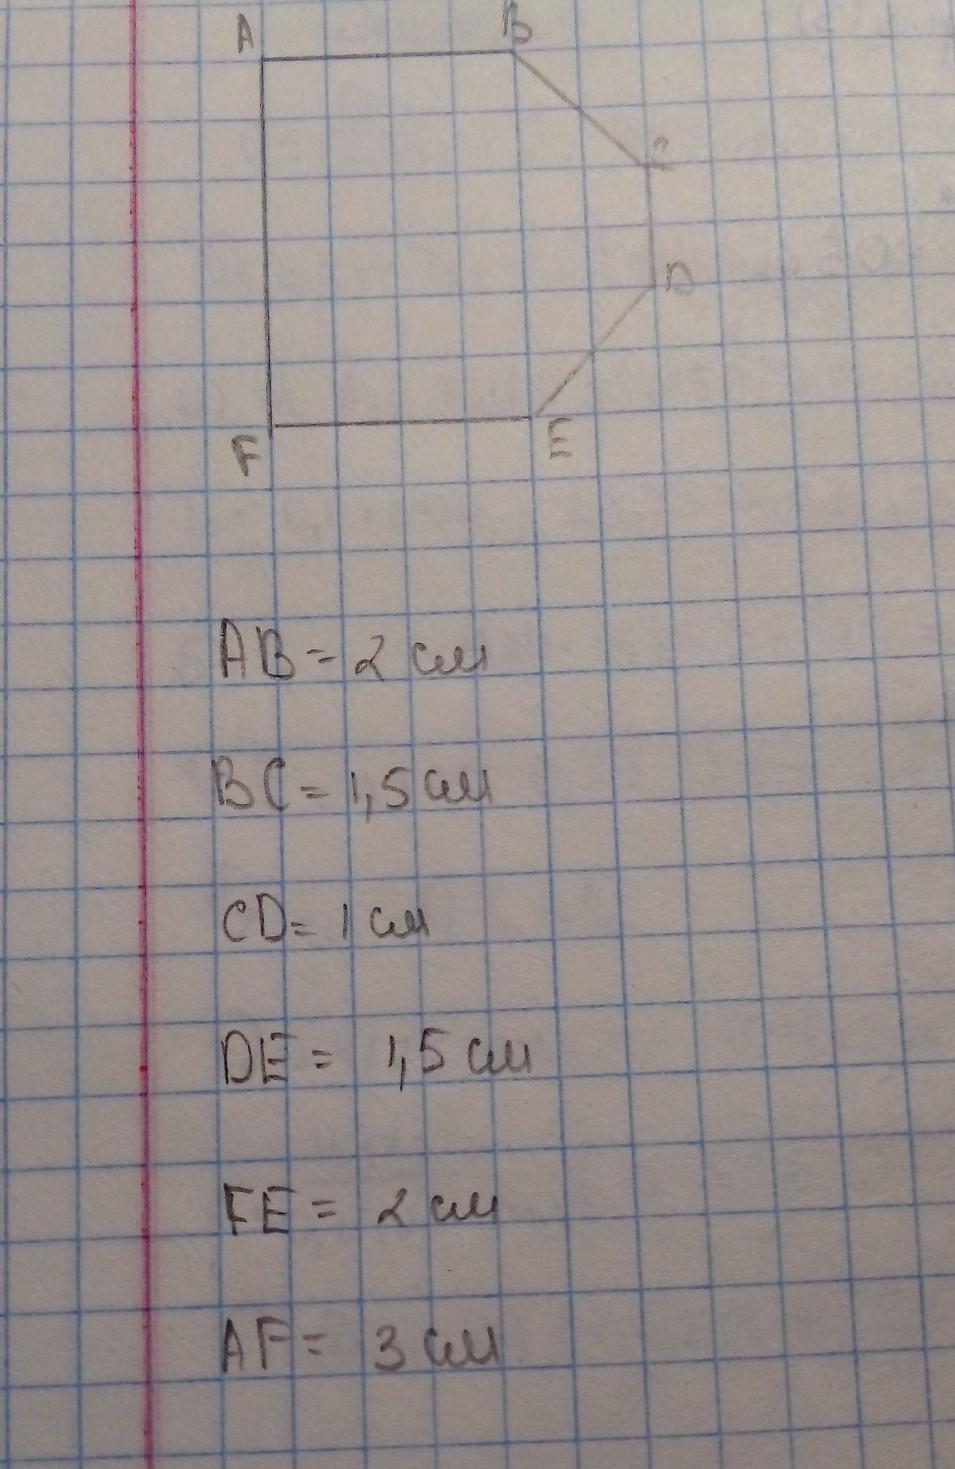 A B
C
D
F E
AB = 2 см
BC = 1,5 см
CD = 1 см
DE = 1,5 см
FE = 2 см
AF = 3 см